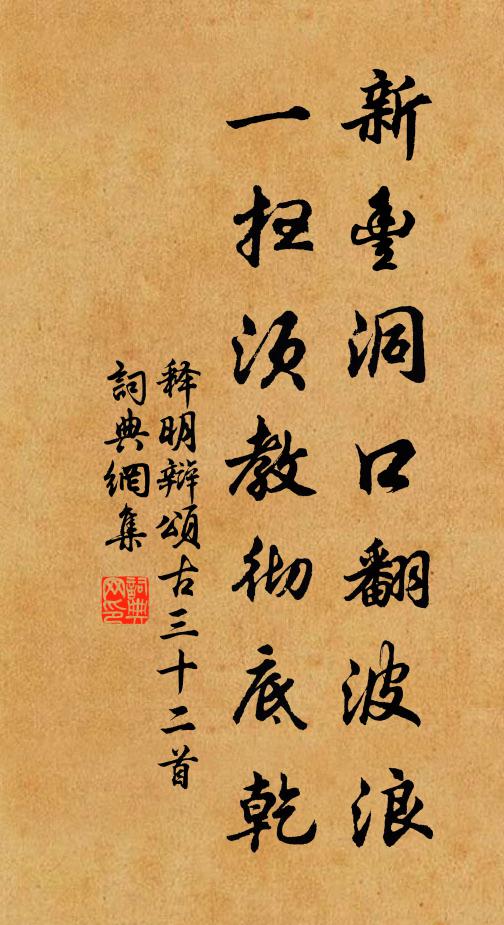 新豐洞口翻波浪
一扫须教彻底乾
释明辩颂古三十二首
詞典網集
詞典网印